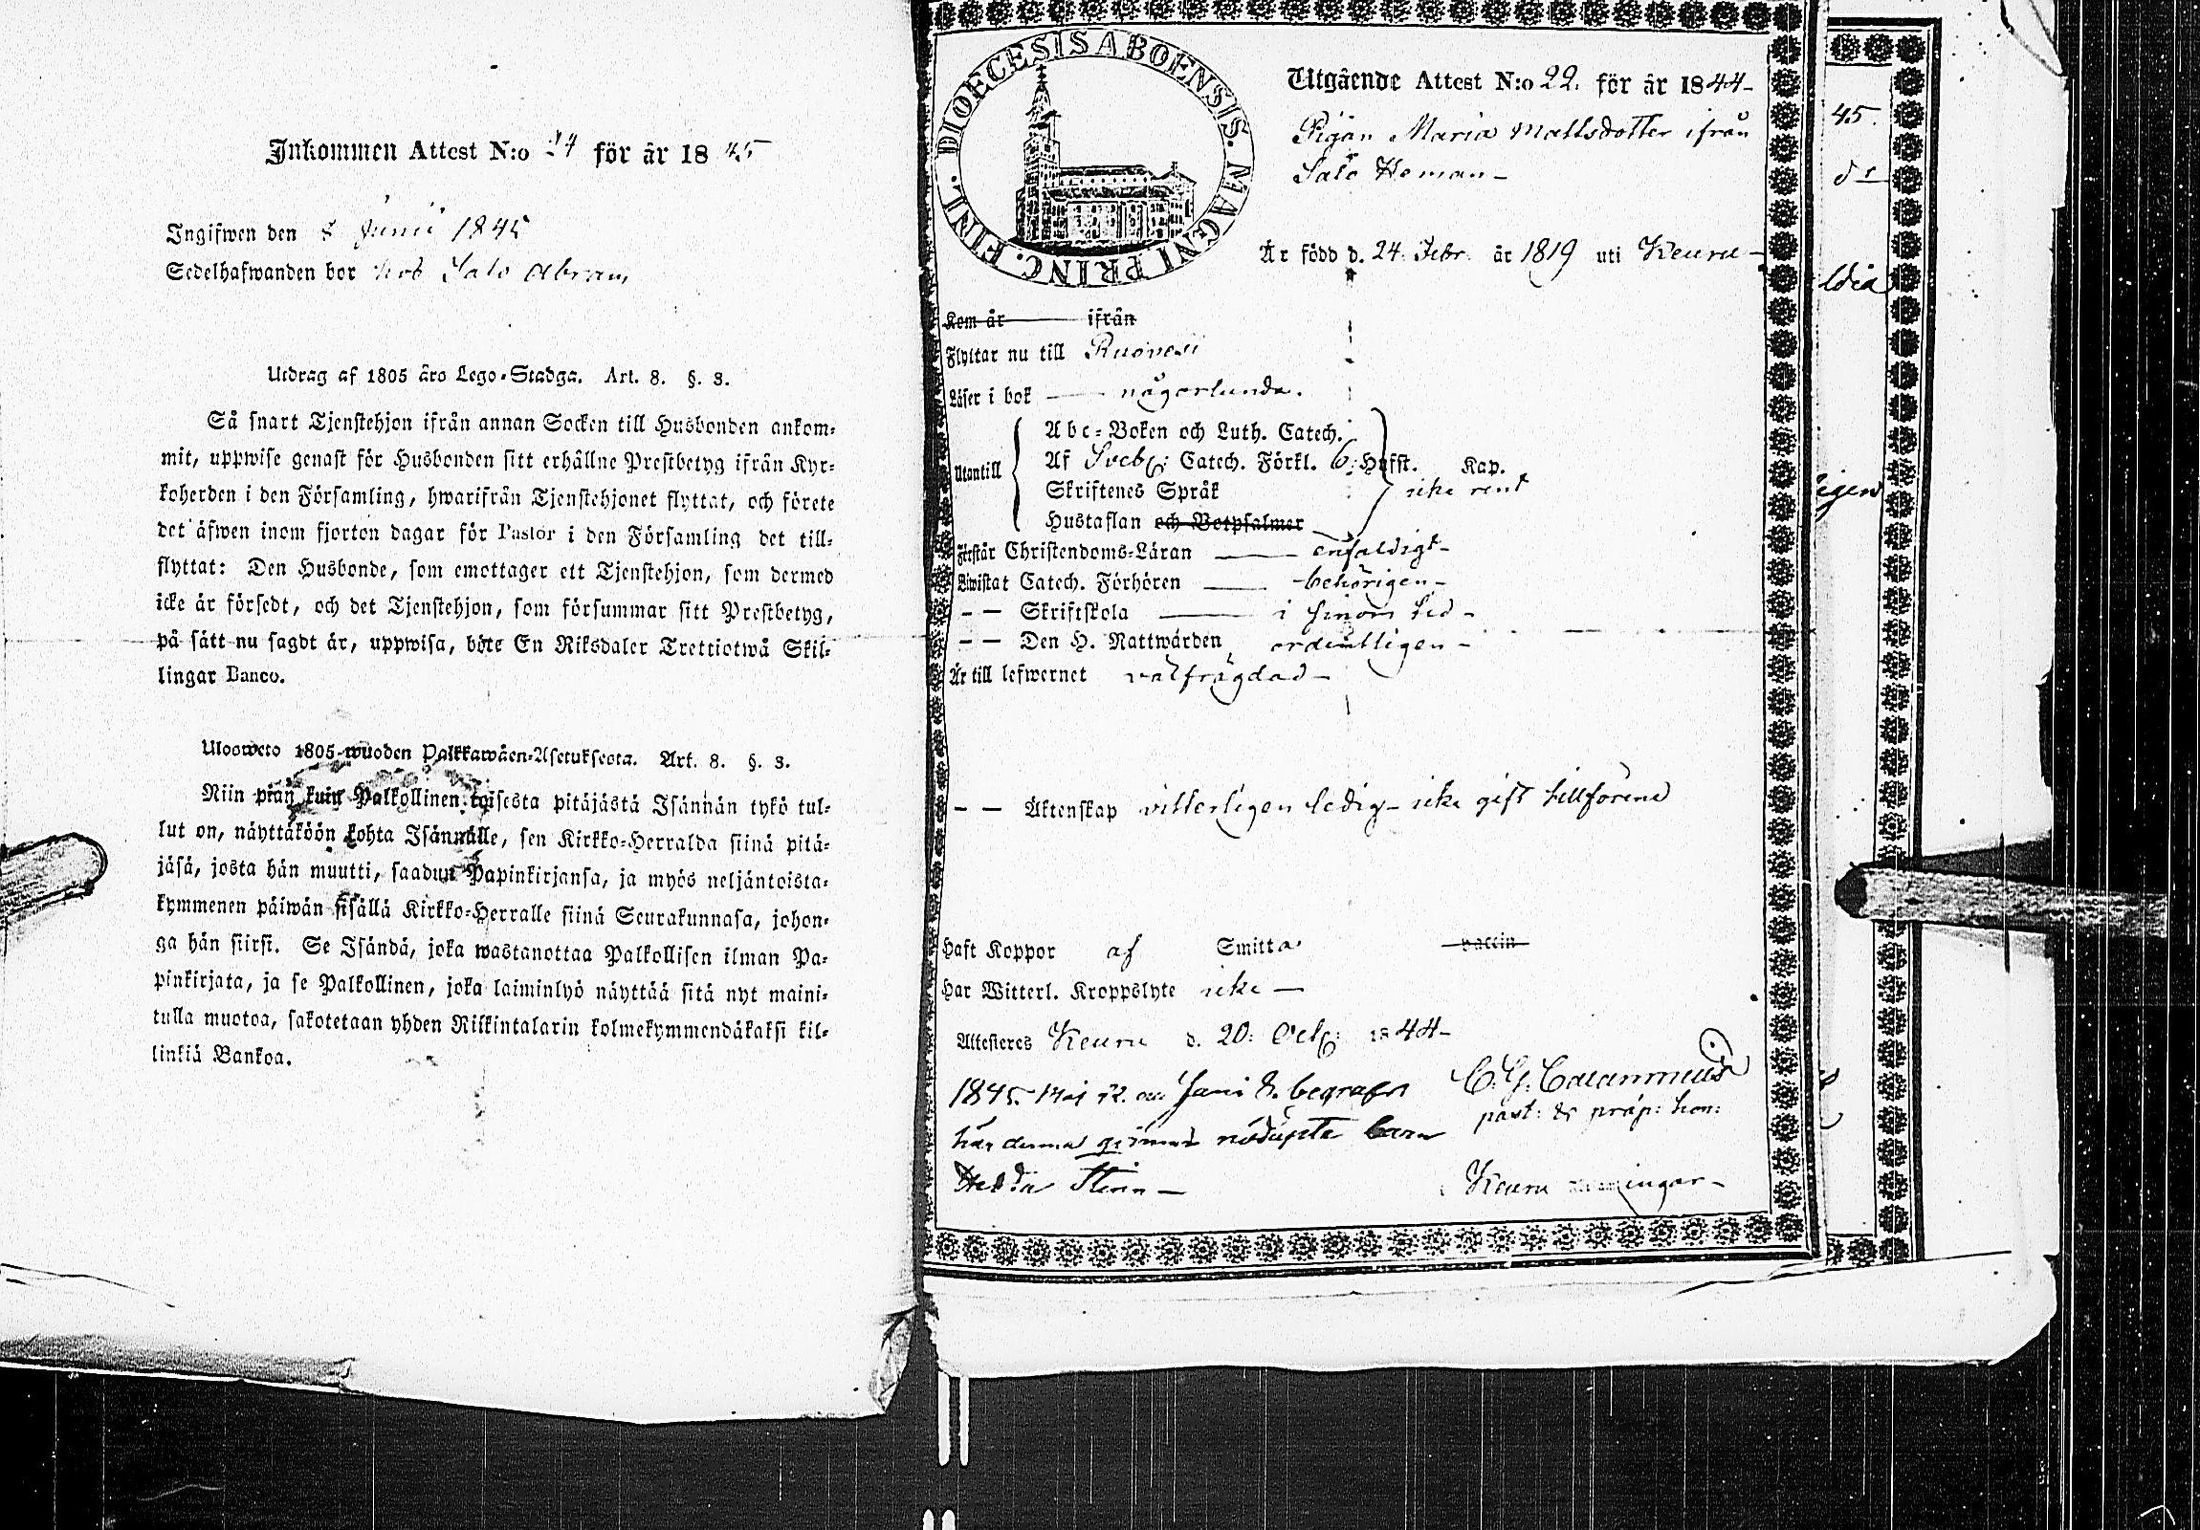 Inkommen Attest N:o 24 för år 1845
Ingifwen den 8 Junii 1845
Sedelhafwanden bor hos Salo Abram
Utdrag af 1805 åro Lego-Stadga. Art. 8. §. 3.
Så snart Tjenstehjon ifrån annan Socken till Husbonden ankom-
mit, uppwise genast för Husbonden sitt erhållne Prestbetyg ifrån Kyr-
koherden i den Församling, hwarifrån Tjenstehjonet flyttat, och förete
det äfwen inom fjorton dagar för Pastor i den Församling det till-
flyttat: Den Husbonde, som emottager ett Tjenstehjon, som dermed
icke är försedt, och det Tjenstehjon, som försummar sitt Prestbetyg,
på sätt nu sagdt är, uppwisa, böte En Riksdaler Trettiotwå Skil-
lingar Banco.
Ulosweto 1805-wuoden Palkkawäen-Asetuksesta. Art. 8. §. 3.
Niin pian kuin Palkollinen toisesta pitäjästä Isännän tykö tul-
lut on, näyttäköön kohta Isännälle, sen Kirkko-Herralda siinä pitä-
jäsä, josta hän muutti, saadun Papinkirjansa, ja myös neljäntoista-
kymmenen päiwän sisällä Kirkko-Herralle siinä Seurakunnasa, johon-
ga hän siirsi. Se Isändä, joka wastanottaa Palkollisen ilman Pa-
pinkirjata, ja se Palkollinen, joka laiminlyö näyttää sitä nyt maini-
tulla muotoa, sakotetaan yhden Riikintalarin kolmekymmendäkaksi kil-
linkiä Bankoa.
DIOECESIS ABOENSIS. MAGNI PRINC. FINL.
Utgående Attest N:o 22. för år 1844
Pigan Maria Mattsdotter ifrån
Salo Heman
Är född d. 24 Febr. år 1819 uti Keuru
Kom år ifrån
Flyttar nu till Ruovesi
Läser i bok någorlunda.
Utantill
Abc-Boken och Luth. Catech.
Af Sveb: Catech. Förkl. 6: Hufst. Kap.
Skriftenes Språk icke rent
Hustaflan och Botpsalmer
Förstår Christendoms-Läran enfaldigt
Biwistat Catech. Förhören behörigen
— — Skriftskola i sinom tid
— — Den H. Nattwarden ordentligen
Är till lefwernet välfrägdad
— — Äktenskap vitterligen ledig - icke gift tillförene
Haft Koppor af Smitta vaccin
Har Witterl. Kroppslyte icke
Attesteres Keuru d. 20: Oct: 1844
1845 Junii 8. begrafvet
här denna qvinnas nöddöpta barn
Hedda Stina
C. G. Calamnius
past: & præp: hon:
Keuru
45.
ldia
igen